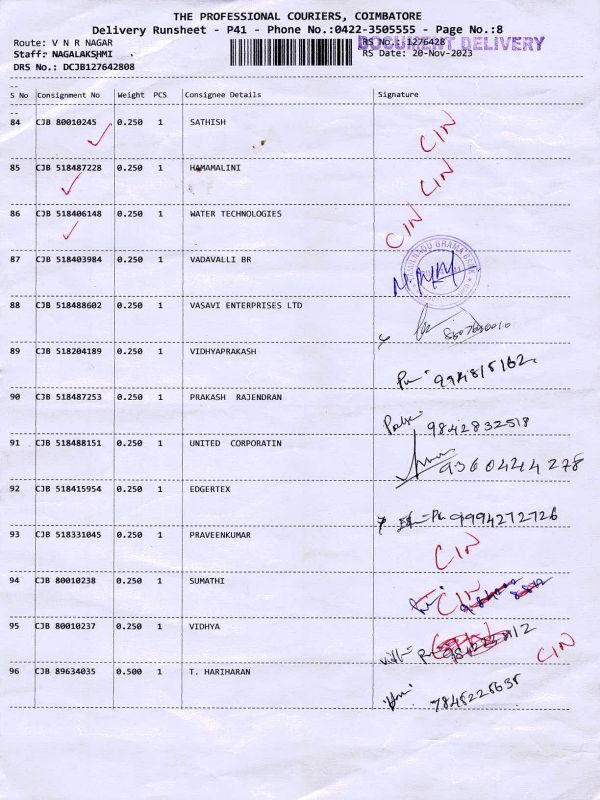 THE PROFESSIONAL COURIERS, COIMBATORE
Delivery Runsheet - P41 - Phone No.:0422-3505555 - Page No.:8
Route: V N R NAGAR RS No.: 1276428 DOCUMENT DELIVERY
Staff: NAGALAKSHMI RS Date: 20-Nov-2023
DRS No.: DCJB127642808
S No Consignment No Weight PCS Consignee Details Signature
84 CJB 80010245 0.250 1 SATHISH CIN
85 CJB 518487228 0.250 1 HAMAMALINI CIN
86 CJB 518406148 0.250 1 WATER TECHNOLOGIES CIN
87 CJB 518403984 0.250 1 VADAVALLI BR
88 CJB 518488602 0.250 1 VASAVI ENTERPRISES LTD
89 CJB 518204189 0.250 1 VIDHYAPRAKASH
90 CJB 518487253 0.250 1 PRAKASH RAJENDRAN 9842832518
91 CJB 518488151 0.250 1 UNITED CORPORATIN 9360424278
92 CJB 518415954 0.250 1 EDGERTEX 9994272726
93 CJB 518331045 0.250 1 PRAVEENKUMAR CIN
94 CJB 80010238 0.250 1 SUMATHI CIN
95 CJB 80010237 0.250 1 VIDHYA CIN
96 CJB 89634035 0.500 1 T. HARIHARAN 7845225635